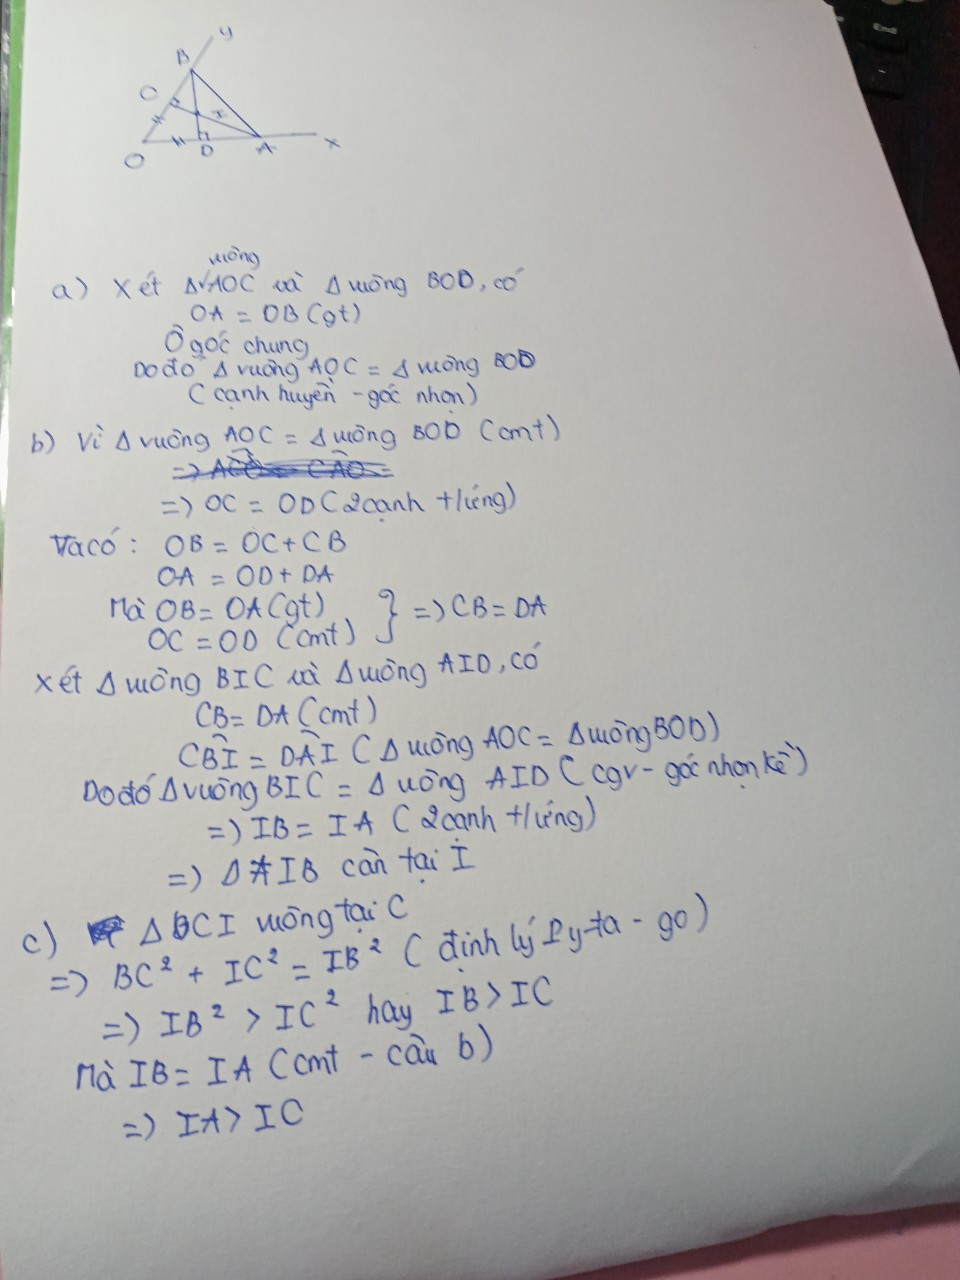 y
B
C
I
O
D
A
x
vuông
a) Xét Δ AOC và Δ vuông BOD, có
OA = OB (gt)
Ô góc chung
Do đó Δ vuông AOC = Δ vuông BOD
(cạnh huyền - góc nhọn)
b) Vì Δ vuông AOC = Δ vuông BOD (cmt)
=> OC = OD (2 cạnh t/ứng)
Ta có: OB = OC + CB
OA = OD + DA
Mà OB = OA (gt)
OC = OD (cmt) } => CB = DA
Xét Δ vuông BIC và Δ vuông AID, có
CB = DA (cmt)
CB̂I = DÂI (Δ vuông AOC = Δ vuông BOD)
Do đó Δ vuông BIC = Δ uông AID (cgv - góc nhọn kề)
=> IB = IA (2 cạnh t/ứng)
=> Δ AIB cân tại I
c) Δ BCI vuông tại C
=> BC² + IC² = IB² (định lý Py-ta-go)
=> IB² > IC² hay IB > IC
Mà IB = IA (cmt - câu b)
=> IA > IC